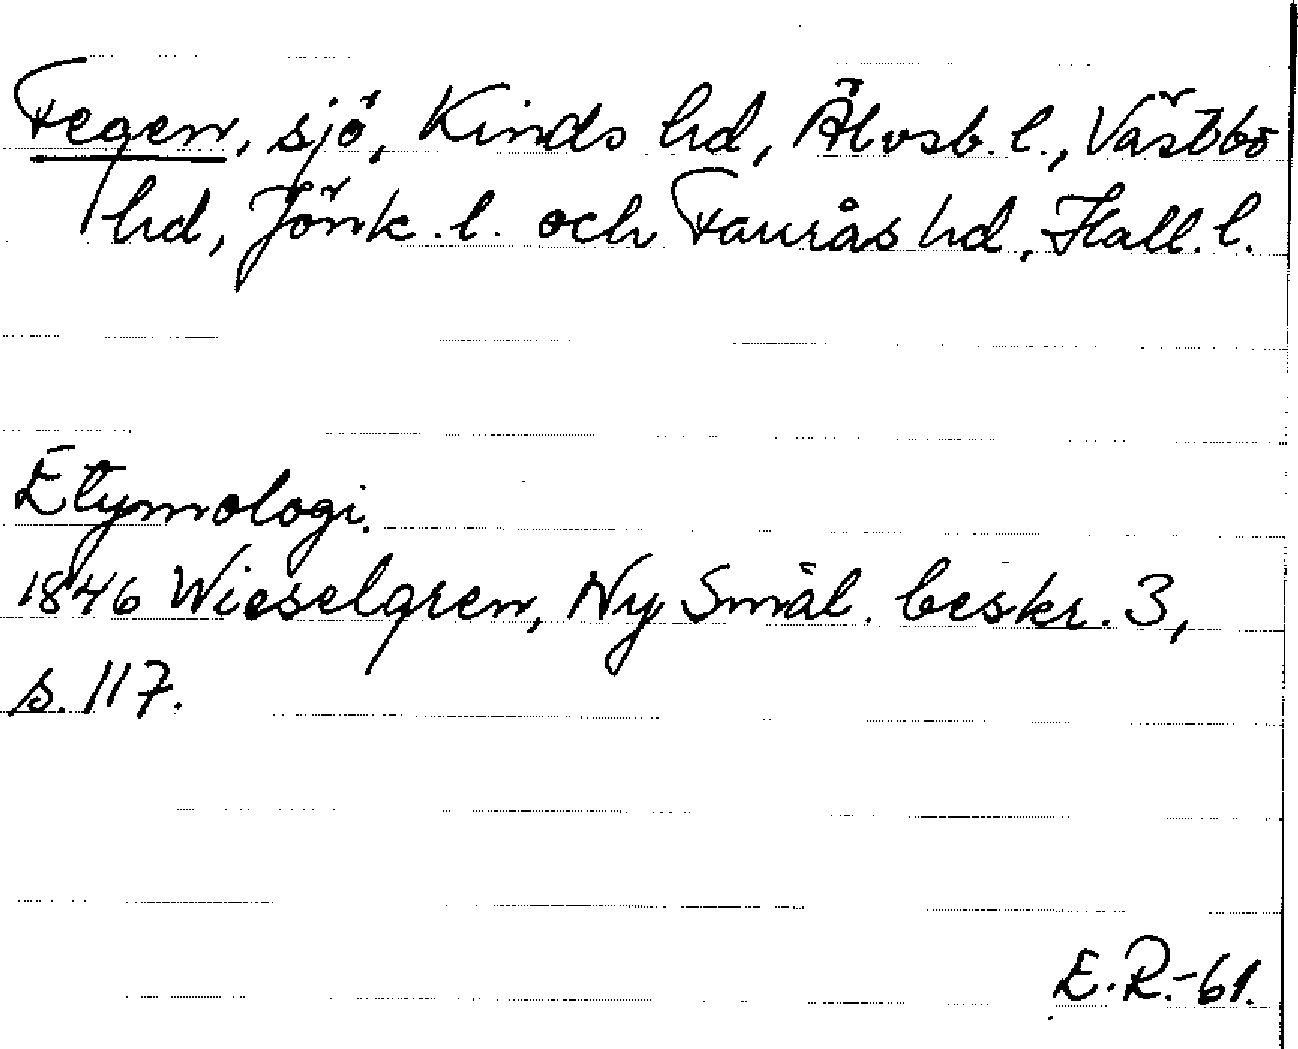 Fegen, sjö, Kinds hd, Älvsb. l., Västbo
hd, Jönk. l. och Faurås hd, Hall. l.
Etymologi.
1846 Wieselgren, Ny Smål. beskr. 3,
s. 117.
E.R.-61.